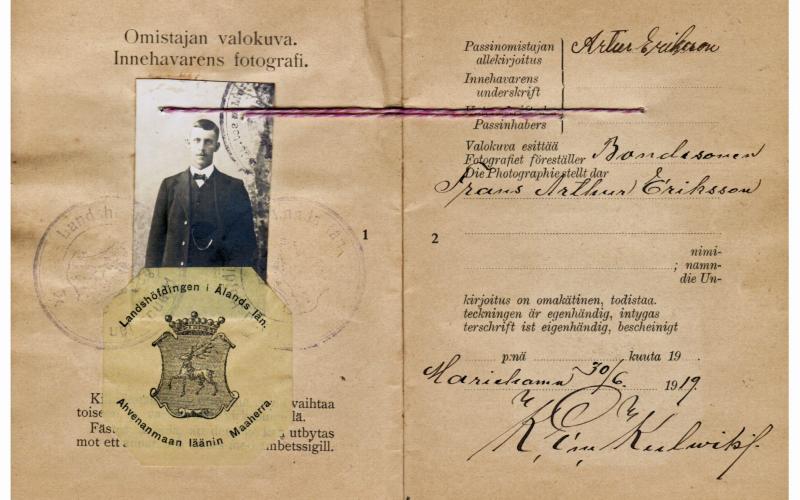 Omistajan valokuva.
Innehavarens fotografi.
Landshöfdingen i Ålands län.
Ahvenanmaan läänin Maaherra.
Ki vaihtaa
toise lä.
Fäst utbytas
mot ett mbetssigill.
1
Passinomistajan
allekirjoitus
Artur Erikson
Innehavarens
underskrift
Passinhabers
Valokuva esittää
Fotografiet föreställer Bondesonen
Die Photographie stellt dar
Frans Arthur Eriksson
2
nimi-
; namn-
die Un-
kirjoitus on omakätinen, todistaa.
teckningen är egenhändig, intygas
terschrift ist eigenhändig, bescheinigt
p:nä kuuta 19
Mariehamn 30/6 1919.